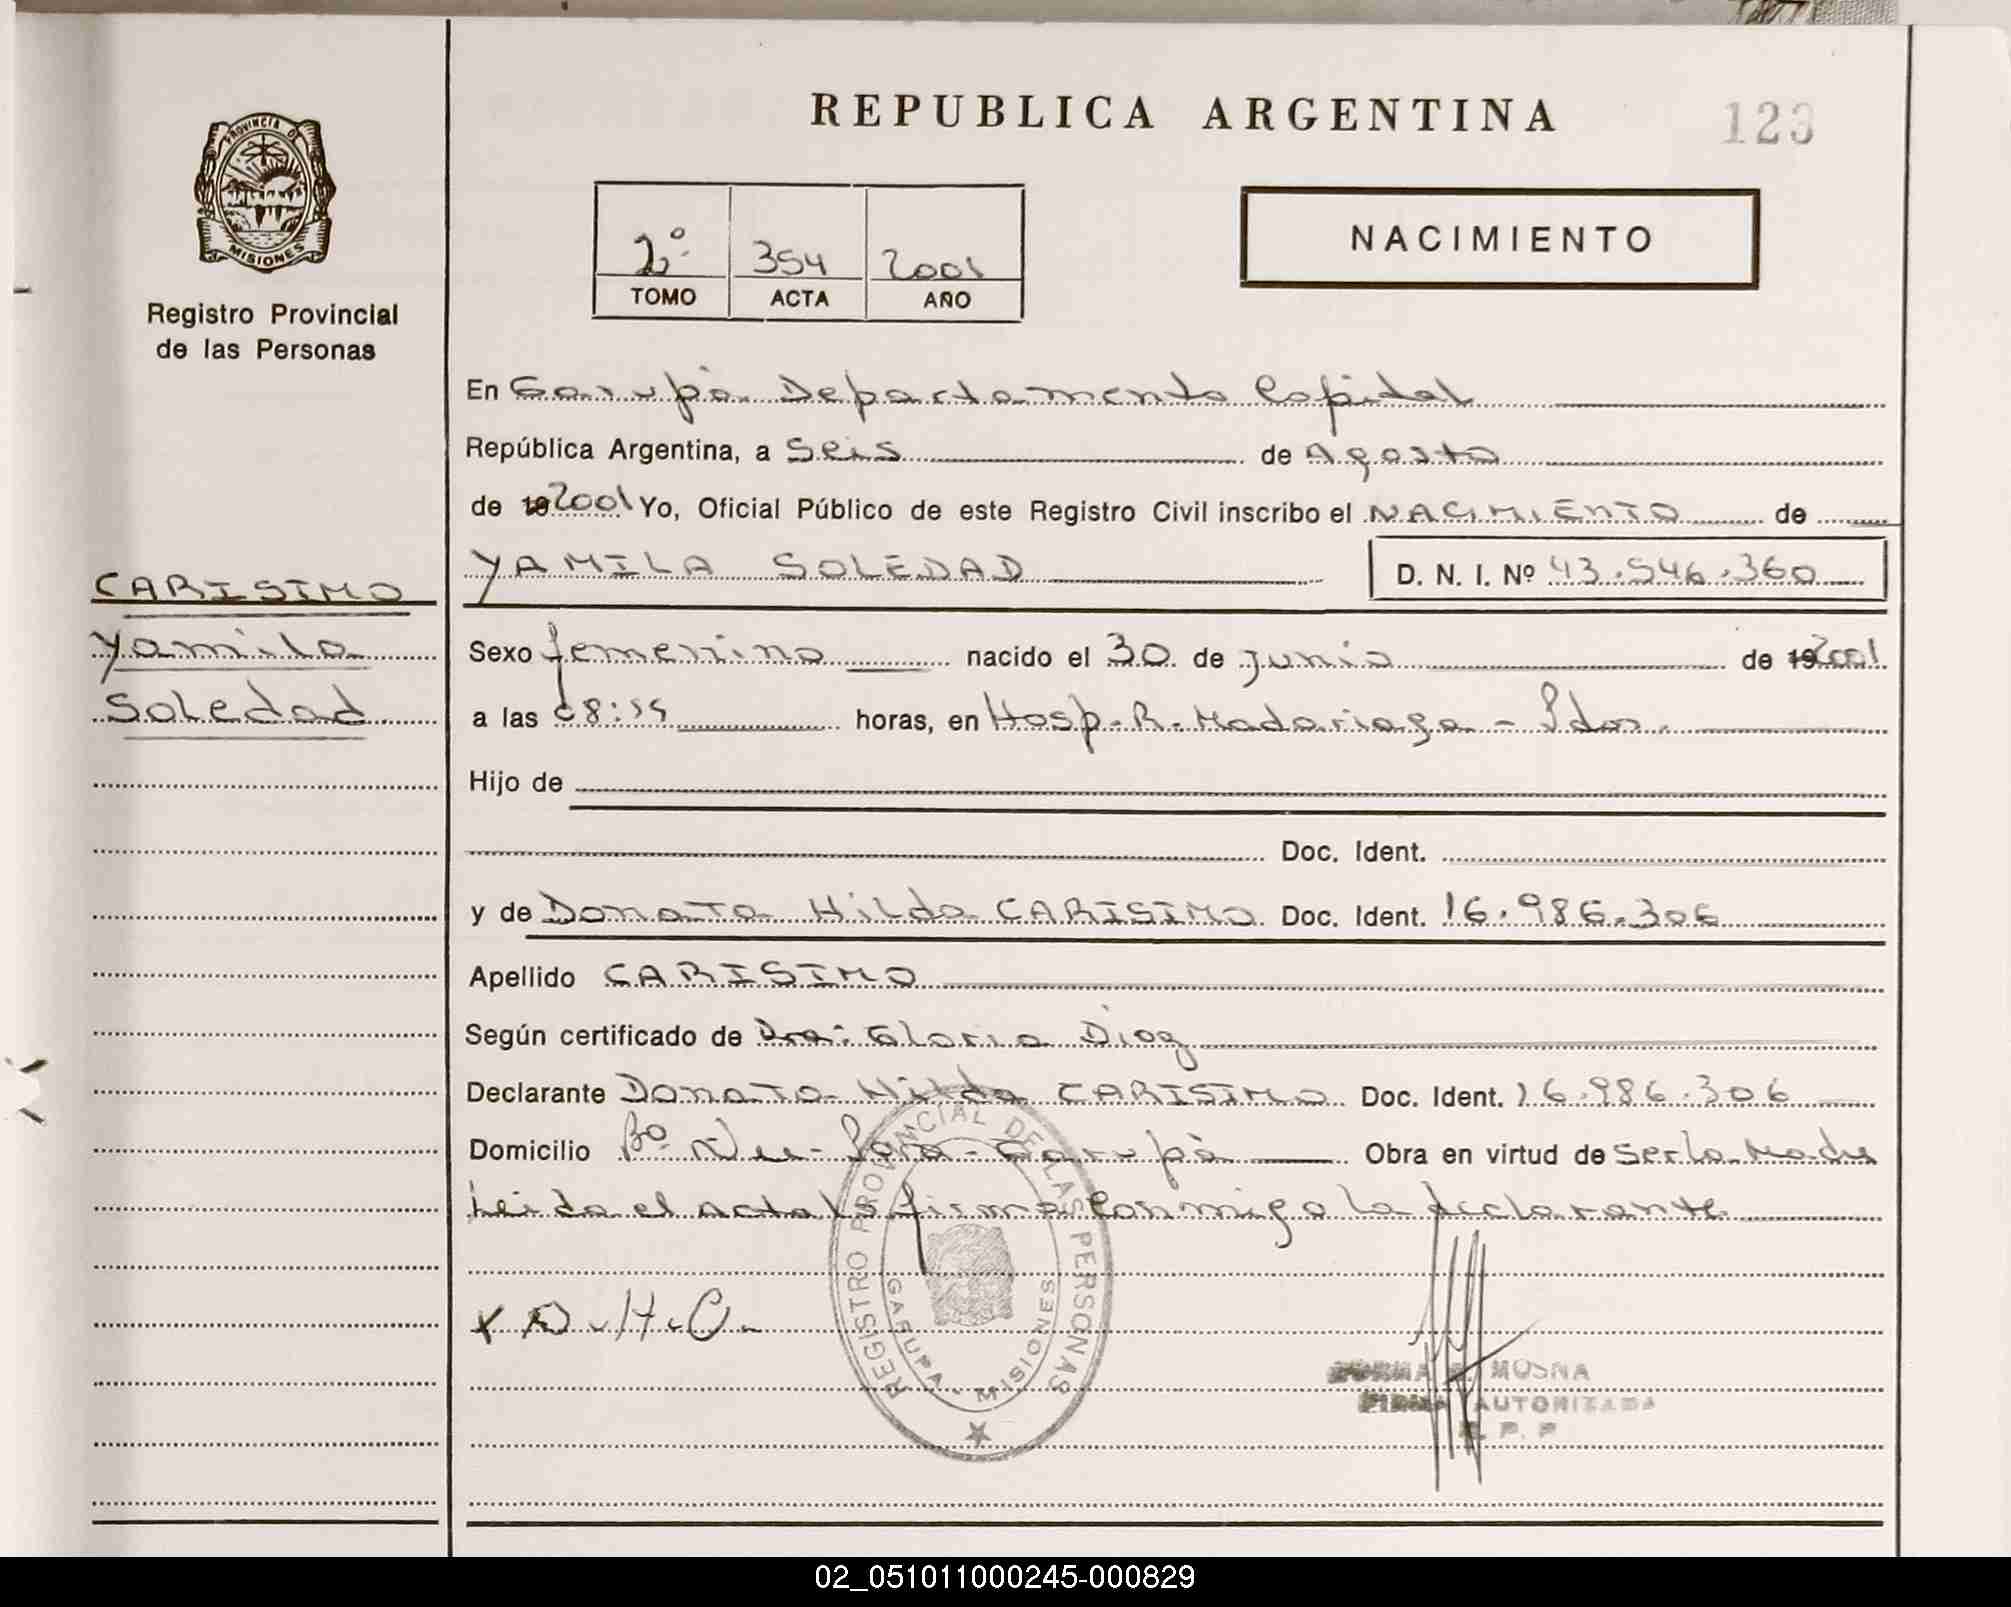 REPUBLICA ARGENTINA
123
PROVINCIA DE
MISIONES
Registro Provincial
de las Personas
2º 354 2001
TOMO ACTA AÑO
NACIMIENTO
En Garupà Departamento Capital
República Argentina, a Seis de Agosto
de 19 2001 Yo, Oficial Público de este Registro Civil inscribo el NACIMIENTO de
YAMILA SOLEDAD D. N. I. Nº 43.546.360
CARISIMO
Yamila
Soledad
Sexo femenino nacido el 30 de junio de 19 2001
a las 08:55 horas, en Hosp. R. Madariaga - Pdas.
Hijo de
Doc. Ident.
y de Donata Hilda CARISIMO Doc. Ident. 16.986.306
Apellido CARISIMO
Según certificado de Dra: Gloria Diaz
Declarante Donata Hilda CARISIMO Doc. Ident. 16.986.306
Domicilio Bº Ñu - Porà - Garupà Obra en virtud de Ser la Madre
Leida el acta la firma conmigo la declarante
x D.H.C.
REGISTRO PROVINCIAL DE LAS PERSONAS
GARUPA - MISIONES
MOSNA
FIRMA AUTORIZADA
R. P. P
02_051011000245-000829